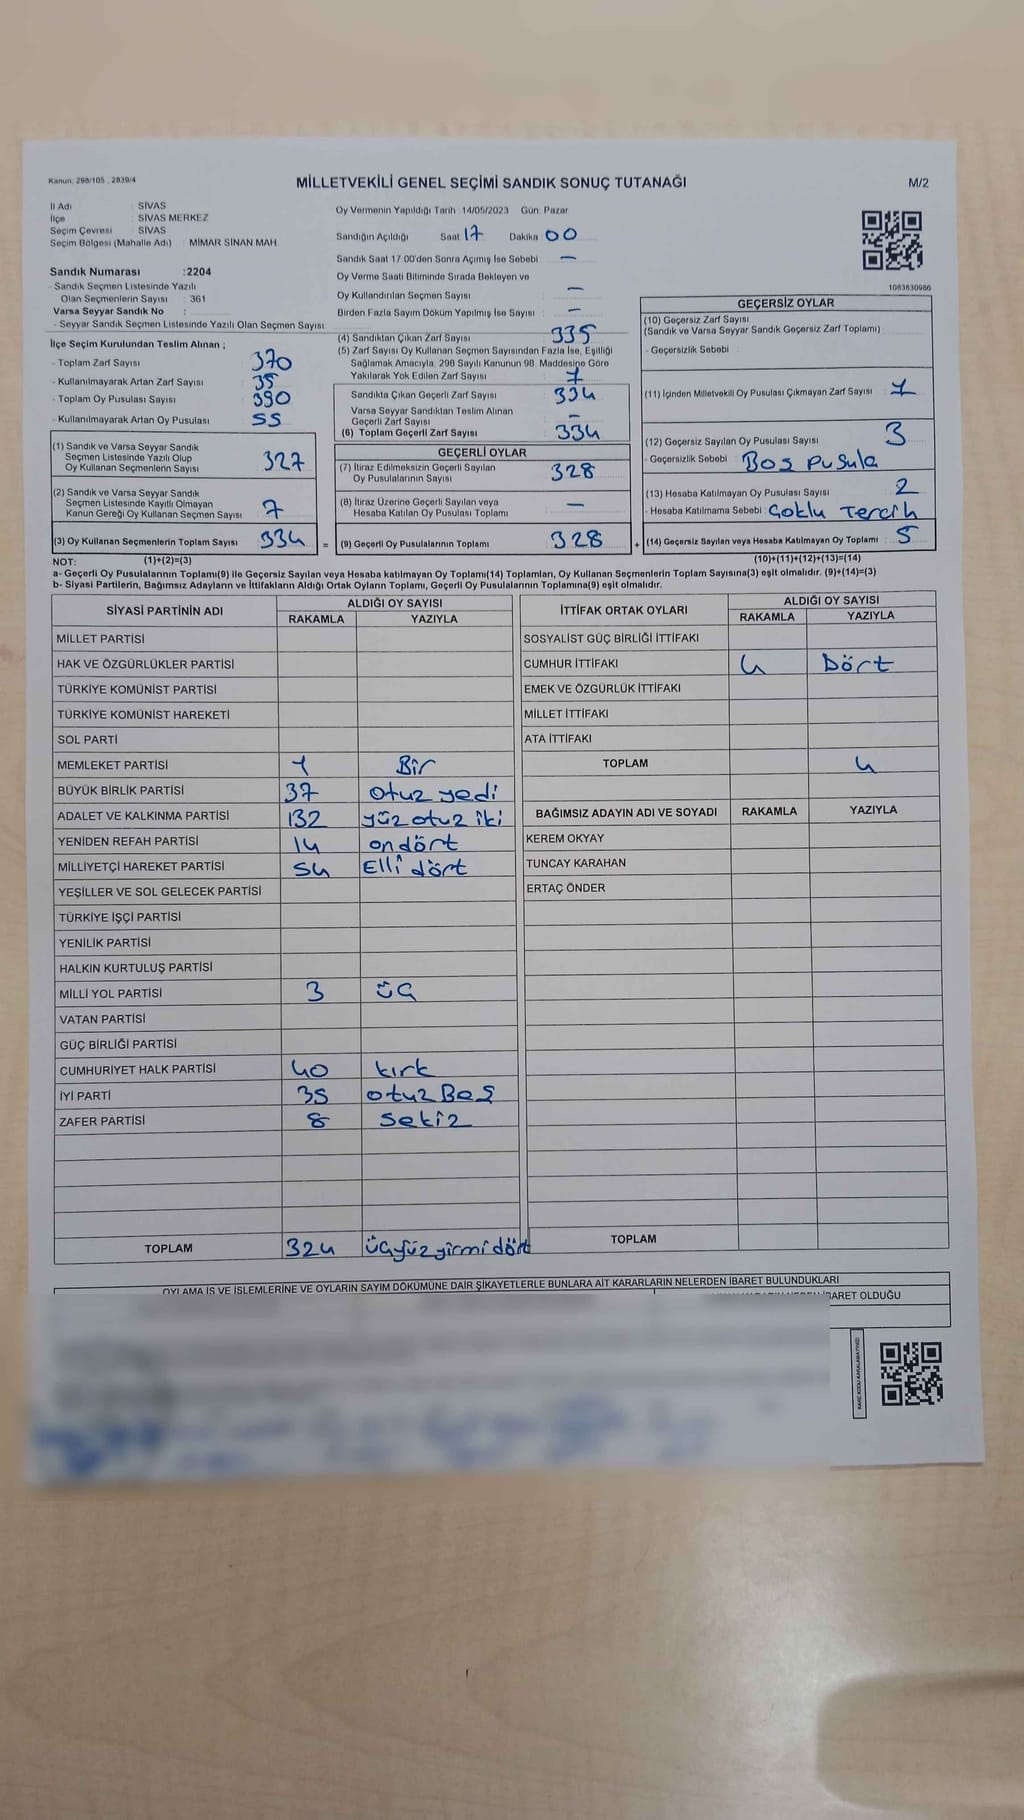 Kanun: 298/105 , 2839/4
MİLLETVEKİLİ GENEL SEÇİMİ SANDIK SONUÇ TUTANAĞI
M/2
İl Adı : SİVAS
İlçe : SİVAS MERKEZ
Seçim Çevresi : SİVAS
Seçim Bölgesi (Mahalle Adı) : MİMAR SİNAN MAH.
Sandık Numarası :2204
- Sandık Seçmen Listesinde Yazılı
Olan Seçmenlerin Sayısı : 361
Varsa Seyyar Sandık No :
- Seyyar Sandık Seçmen Listesinde Yazılı Olan Seçmen Sayısı:
Oy Vermenin Yapıldığı Tarih 14/05/2023 Gün: Pazar
Sandığın Açıldığı Saat 17 Dakika 00
Sandık Saat 17:00'den Sonra Açımış İse Sebebi : —
Oy Verme Saati Bitiminde Sırada Bekleyen ve
Oy Kullandırılan Seçmen Sayısı : —
Birden Fazla Sayım Döküm Yapılmış İse Sayısı : —
1083630986
İlçe Seçim Kurulundan Teslim Alınan ;
- Toplam Zarf Sayısı : 370
- Kullanılmayarak Artan Zarf Sayısı : 35
- Toplam Oy Pusulası Sayısı : 390
- Kullanılmayarak Artan Oy Pusulası : 55
(1) Sandık ve Varsa Seyyar Sandık
Seçmen Listesinde Yazılı Olup
Oy Kullanan Seçmenlerin Sayısı : 327
(2) Sandık ve Varsa Seyyar Sandık
Seçmen Listesinde Kayıtlı Olmayan
Kanun Gereği Oy Kullanan Seçmen Sayısı : 7
(3) Oy Kullanan Seçmenlerin Toplam Sayısı : 334
(4) Sandıktan Çıkan Zarf Sayısı : 335
(5) Zarf Sayısı Oy Kullanan Seçmen Sayısından Fazla İse, Eşitliği
Sağlamak Amacıyla, 298 Sayılı Kanunun 98. Maddesine Göre
Yakılarak Yok Edilen Zarf Sayısı : 1
Sandıkta Çıkan Geçerli Zarf Sayısı : 334
Varsa Seyyar Sandıktan Teslim Alınan
Geçerli Zarf Sayısı : —
(6) Toplam Geçerli Zarf Sayısı : 334
GEÇERLİ OYLAR
(7) İtiraz Edilmeksizin Geçerli Sayılan
Oy Pusulalarının Sayısı : 328
(8) İtiraz Üzerine Geçerli Sayılan veya
Hesaba Katılan Oy Pusulası Toplamı : —
= (9) Geçerli Oy Pusulalarının Toplamı : 328
GEÇERSİZ OYLAR
(10) Geçersiz Zarf Sayısı
(Sandık ve Varsa Seyyar Sandık Geçersiz Zarf Toplamı) :
- Geçersizlik Sebebi :
(11) İçinden Milletvekili Oy Pusulası Çıkmayan Zarf Sayısı : 1
(12) Geçersiz Sayılan Oy Pusulası Sayısı : 3
- Geçersizlik Sebebi : Boş Pusula
(13) Hesaba Katılmayan Oy Pusulası Sayısı : 2
- Hesaba Katılmama Sebebi : Çoklu Tercih
+ (14) Geçersiz Sayılan veya Hesaba Katılmayan Oy Toplamı : 5
NOT: (1)+(2)=(3) (10)+(11)+(12)+(13)=(14)
a- Geçerli Oy Pusulalarının Toplamı(9) ile Geçersiz Sayılan veya Hesaba katılmayan Oy Toplamı(14) Toplamları, Oy Kullanan Seçmenlerin Toplam Sayısına(3) eşit olmalıdır. (9)+(14)=(3)
b- Siyasi Partilerin, Bağımsız Adayların ve İttifakların Aldığı Ortak Oyların Toplamı, Geçerli Oy Pusulalarının Toplamına(9) eşit olmalıdır.
SİYASİ PARTİNİN ADI ALDIĞI OY SAYISI
RAKAMLA YAZIYLA
MİLLET PARTİSİ
HAK VE ÖZGÜRLÜKLER PARTİSİ
TÜRKİYE KOMÜNİST PARTİSİ
TÜRKİYE KOMÜNİST HAREKETİ
SOL PARTİ
MEMLEKET PARTİSİ 1 Bir
BÜYÜK BİRLİK PARTİSİ 37 otuz yedi
ADALET VE KALKINMA PARTİSİ 132 yüz otuz iki
YENİDEN REFAH PARTİSİ 14 on dört
MİLLİYETÇİ HAREKET PARTİSİ 54 Elli dört
YEŞİLLER VE SOL GELECEK PARTİSİ
TÜRKİYE İŞÇİ PARTİSİ
YENİLİK PARTİSİ
HALKIN KURTULUŞ PARTİSİ
MİLLİ YOL PARTİSİ 3 üç
VATAN PARTİSİ
GÜÇ BİRLİĞİ PARTİSİ
CUMHURİYET HALK PARTİSİ 40 kırk
İYİ PARTİ 35 otuz Beş
ZAFER PARTİSİ 8 sekiz
TOPLAM 324 üçyüz yirmi dört
İTTİFAK ORTAK OYLARI ALDIĞI OY SAYISI
RAKAMLA YAZIYLA
SOSYALİST GÜÇ BİRLİĞİ İTTİFAKI
CUMHUR İTTİFAKI 4 Dört
EMEK VE ÖZGÜRLÜK İTTİFAKI
MİLLET İTTİFAKI
ATA İTTİFAKI
TOPLAM 4
BAĞIMSIZ ADAYIN ADI VE SOYADI RAKAMLA YAZIYLA
KEREM OKYAY
TUNCAY KARAHAN
ERTAÇ ÖNDER
TOPLAM
OYLAMA İŞ VE İŞLEMLERİNE VE OYLARIN SAYIM DÖKÜMÜNE DAİR ŞİKAYETLERLE BUNLARA AİT KARARLARIN NELERDEN İBARET BULUNDUKLARI
İBARET OLDUĞU